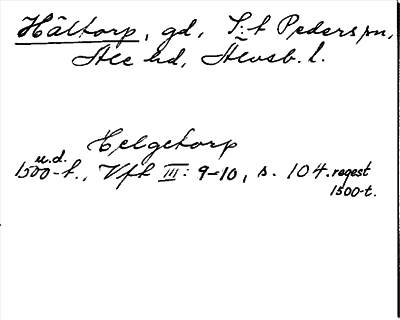 Hältorp, gd, S:t Peders sn,
Ale hd, Älvsb. l.
Helgetorp
u.d.
1500-t., Vft III: 9-10, s. 104. regest
1500-t.